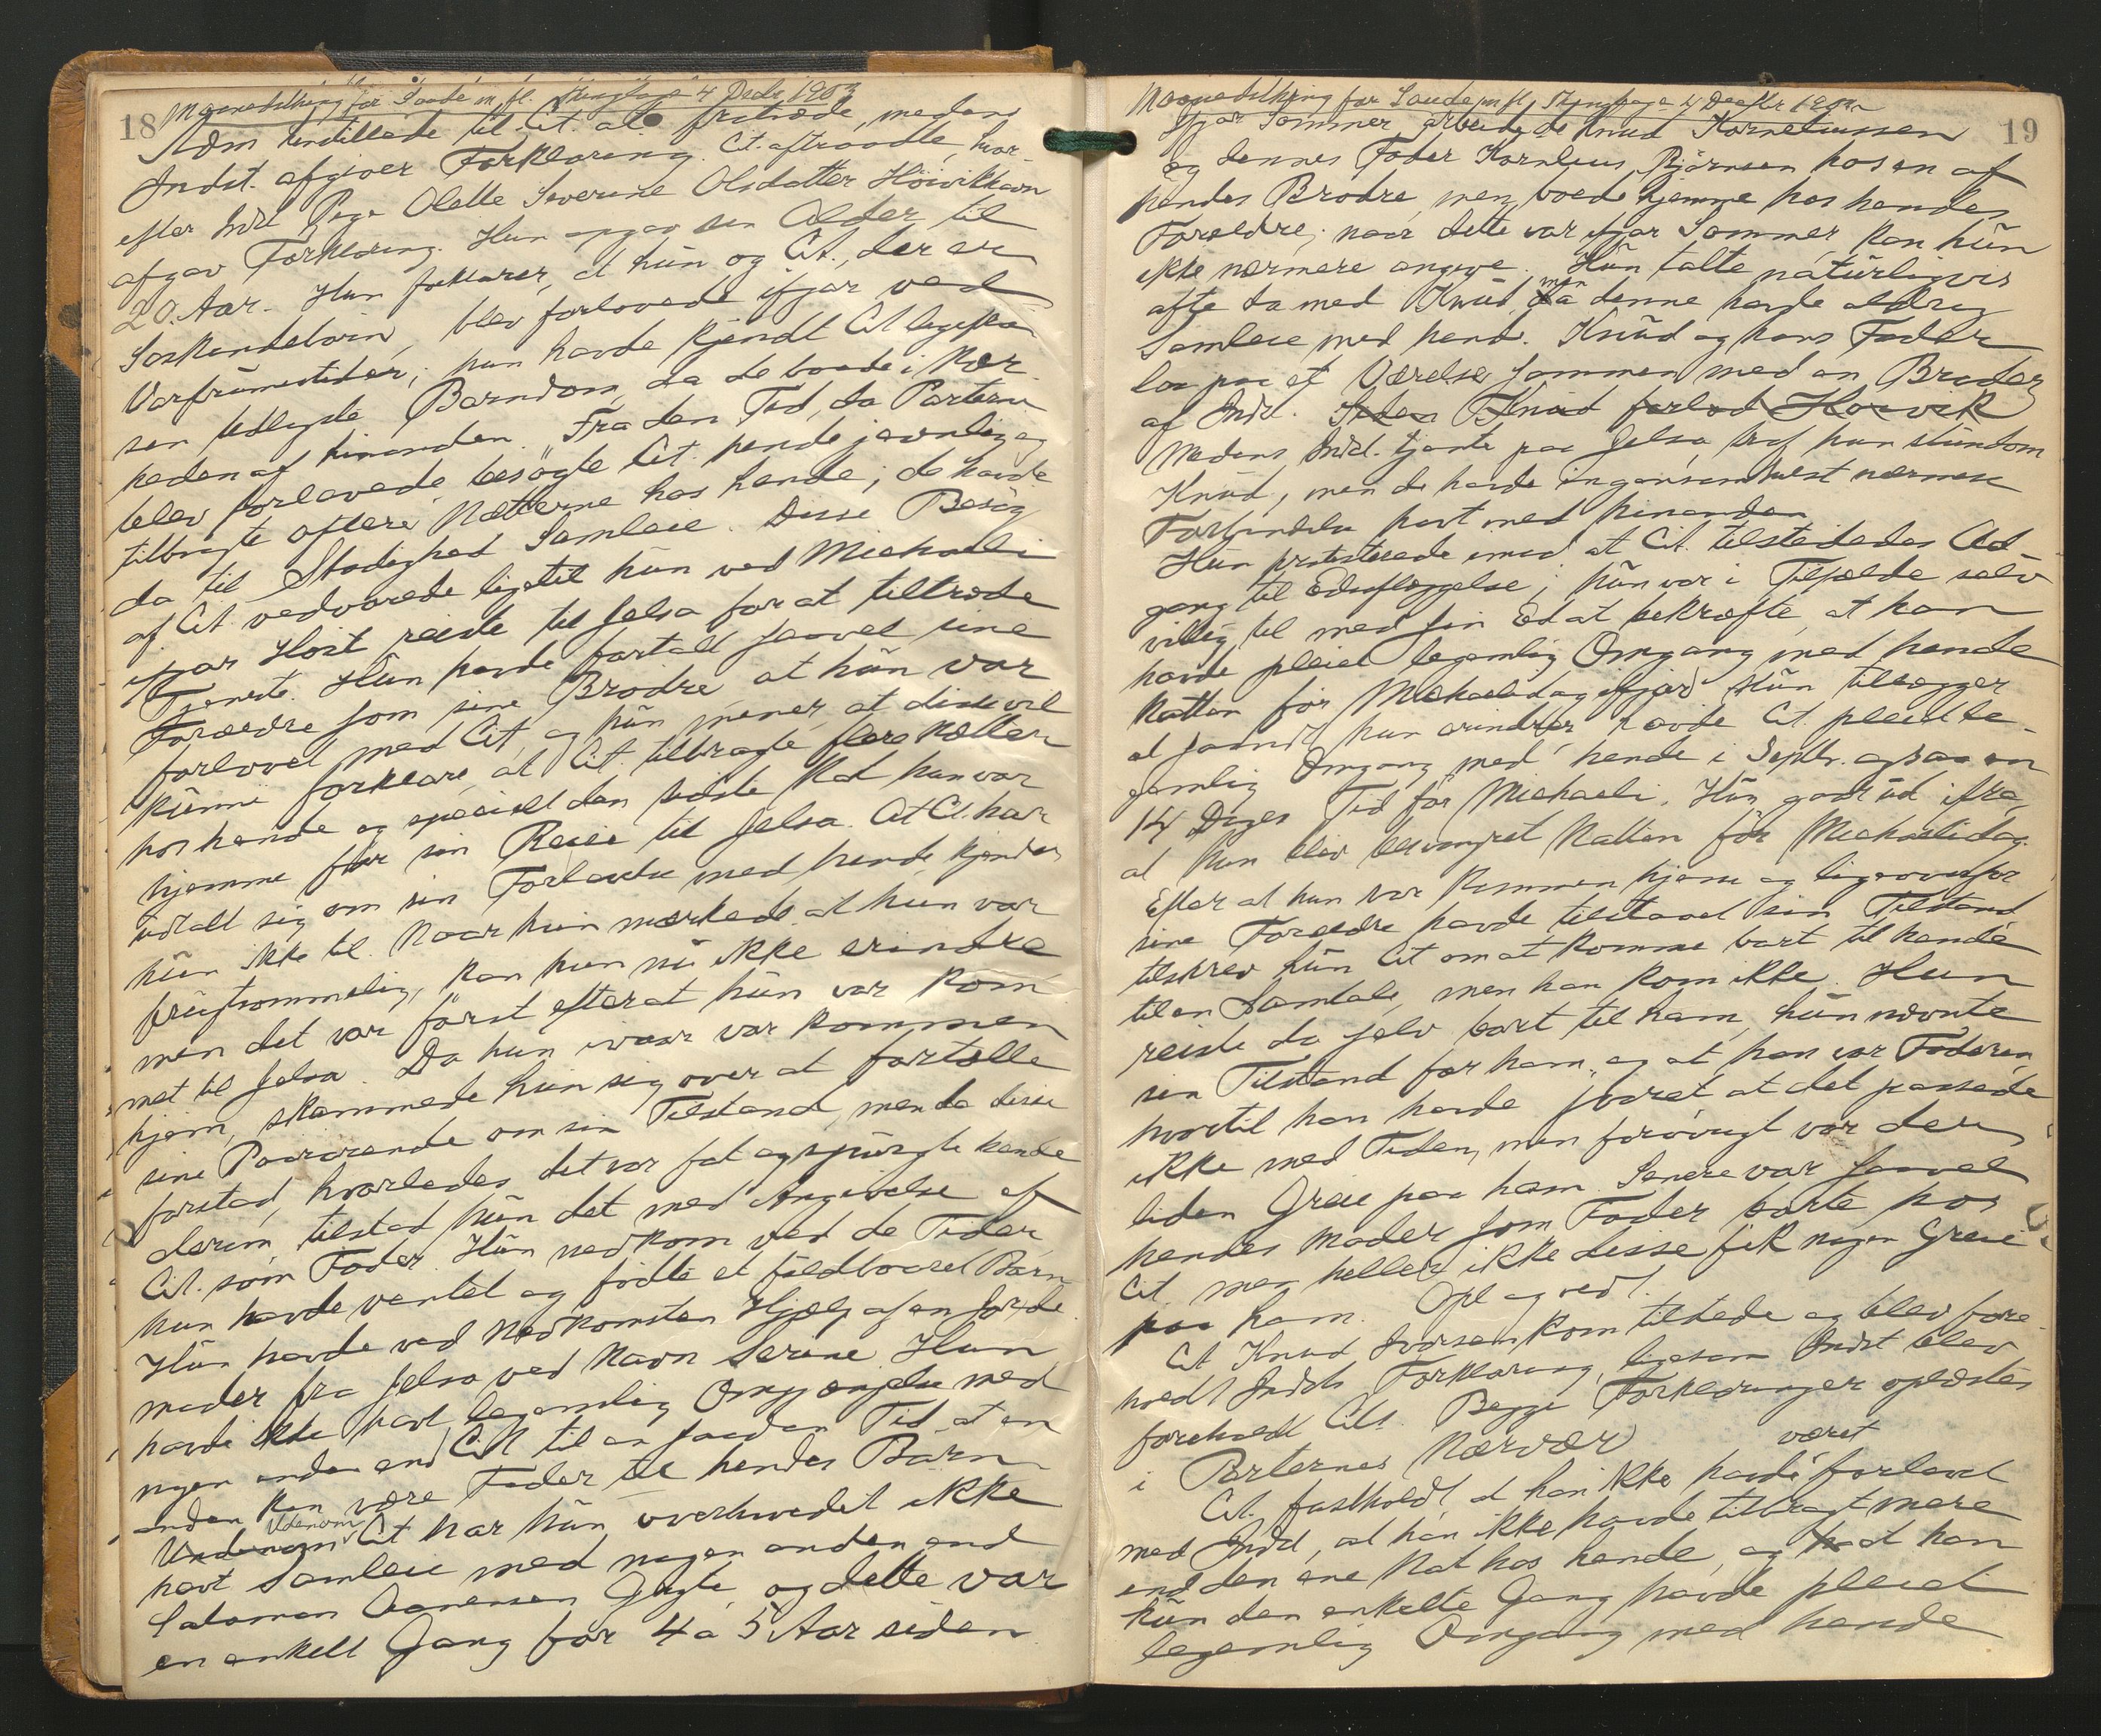 18
Maanedsthing for Saude m fl. Thinglage 4 Decbr 1903
Adm henstillede til Cit. at fratræde, medens
Indst. afgiver Forklaring. Cit. aftraadte, hvor-
efter Indst Pige Olette Severine Olsdatter Höivikhavn
afgav Forklaring. Hun opgav sin Alder til
20. Aar. Hun forklarer, at hun og Cit., der er
Sørskendebørn, blev forlovede ifjor ved
Vorfrumestider; hun havde kjendt Cit ligefra
sen tidligste Barndom, da de boede i Nær-
heden af hinanden. Fra den Tid, da Parterne
blev forlovede besögte Cit. hende jævnlig og
tilbragte oftere Nætterne hos hende; de havde
da til Stadighed Samleie. Disse Besög
af Cit. vedvarede ligetil hun ved Michaeli
ifjor Höst reiste til Jelsa for at tiltræde
Tjeneste. Hun havde fortalt saavel sine
Forældre som sine Brodre at hun var
forlovet med Cit, og hun mener, at disse vil
kunne forklare, at Cit. tilbragte flere Nætter
hos hende og specielt den sidste Nat hun var
hjemme för sin Reise til Jelsa. At Cit. har
udtalt sig om sin Forlovelse med hende, kjender
hun ikke til. Naar hun mærkede at hun var
frugtsommelig, kan hun nu ikke erindre
men det var först efterat hun var kom-
met til Jelsa. Da hun ivaar var kommen
hjem, skammede hun sig over at fortælle
sine Paarørende om sin Tilstand, men da disse
forstod, hvorledes det var fat og spurgte hende
derom, tilstod hun det med Angivelse af
Cit. som Fader. Hun nedkom ved de Tider
hun havde ventet og födte et fuldbaaret Barn
Hun havde ved Nedkomsten Hjælp af en Jorde-
moder fra Jelsa ved Navn Serine. Hun
havde ikke havt legemlig Omgjængelse med
nogen anden end Cit til en saadan Tid at en
anden kan være Fader til hendes Barn
Udenom Cit har hun overhovedet ikke
havt Samleie med nogen anden end
Salomon Aanensen og dette var
en enkelt Gang for 4 a 5 Aar siden
19
Maanedsthing for Saude m fl, Thinglage 4 Decbr 1903
Ifjor Sommer arbeidede Knud Korneliussen
og dennes Fader Kornelius Björnsen hos en af
hendes Brodre, men boede hjemme hos hendes
Forældre; naar dette var ifjor Sommer, kan hun
ikke nærmere angive. Hun talte naturligvis
ofte da med Knud, men denne havde aldrig
Samleie med hend. Knud og hans Fader
laa paa et Værelse sammen med en Broder
af Indst. Siden Knud forlod Höivik
Medens Indst. tjente paa Jelsa, traf hun stundom
Knud, men de havde ingensomhelst nærmere
Forbindelse havt med hinanden
Hun protesterede imod at Cit. tilstededes Ad-
gang til Edsaflæggelse; hun var i Tilfælde selv
villig til med sin Ed at bekræfte, at han
havde pleiet legemlig Omgang med hende
Natten för Michaelidag ifjor. Hun tillægger
at saavidt hun erindrer havde Cit. pleiet le-
gemlig Omgang med hende i Septbr. ogsaa en
14 Dages Tid för Michaeli. Hun gaar ud ifra,
at hun blev besvangret Natten för Michaelidag.
Efter at hun var kommen hjem og ligeoverfor
sine Forældre havde tilstaaet sin Tilstand
tilskrev hun Cit om at komme bort til hende
til en Samtale, men han kom ikke. Hun
reiste da selv bort til ham, hun nævnte
sin Tilstand for ham, og at han var Faderen,
hvortil han havde svaret at det passede
ikke med Tiden, men forövrigt var der
liden Greie paa ham. Senere var saavel
hendes Moder som Fader borte hos
Cit, men heller ikke disse fik nogen Greie
paa ham. Opl og vedt.
Cit Knud Ivarsen kom tilstede og blev fore-
holdt Indsts Forklaring, ligesom Indst blev
foreholdt Cits. Begge Forklaringer oplæstes
i Parternes Nærvær
Cit. fastholdt at han ikke havde været forlovet
med Indst, at han ikke havde tilbragt mere
end den ene Nat hos hende, og at han
kun den enkelte Gang havde pleiet
legemlig Omgang med hende